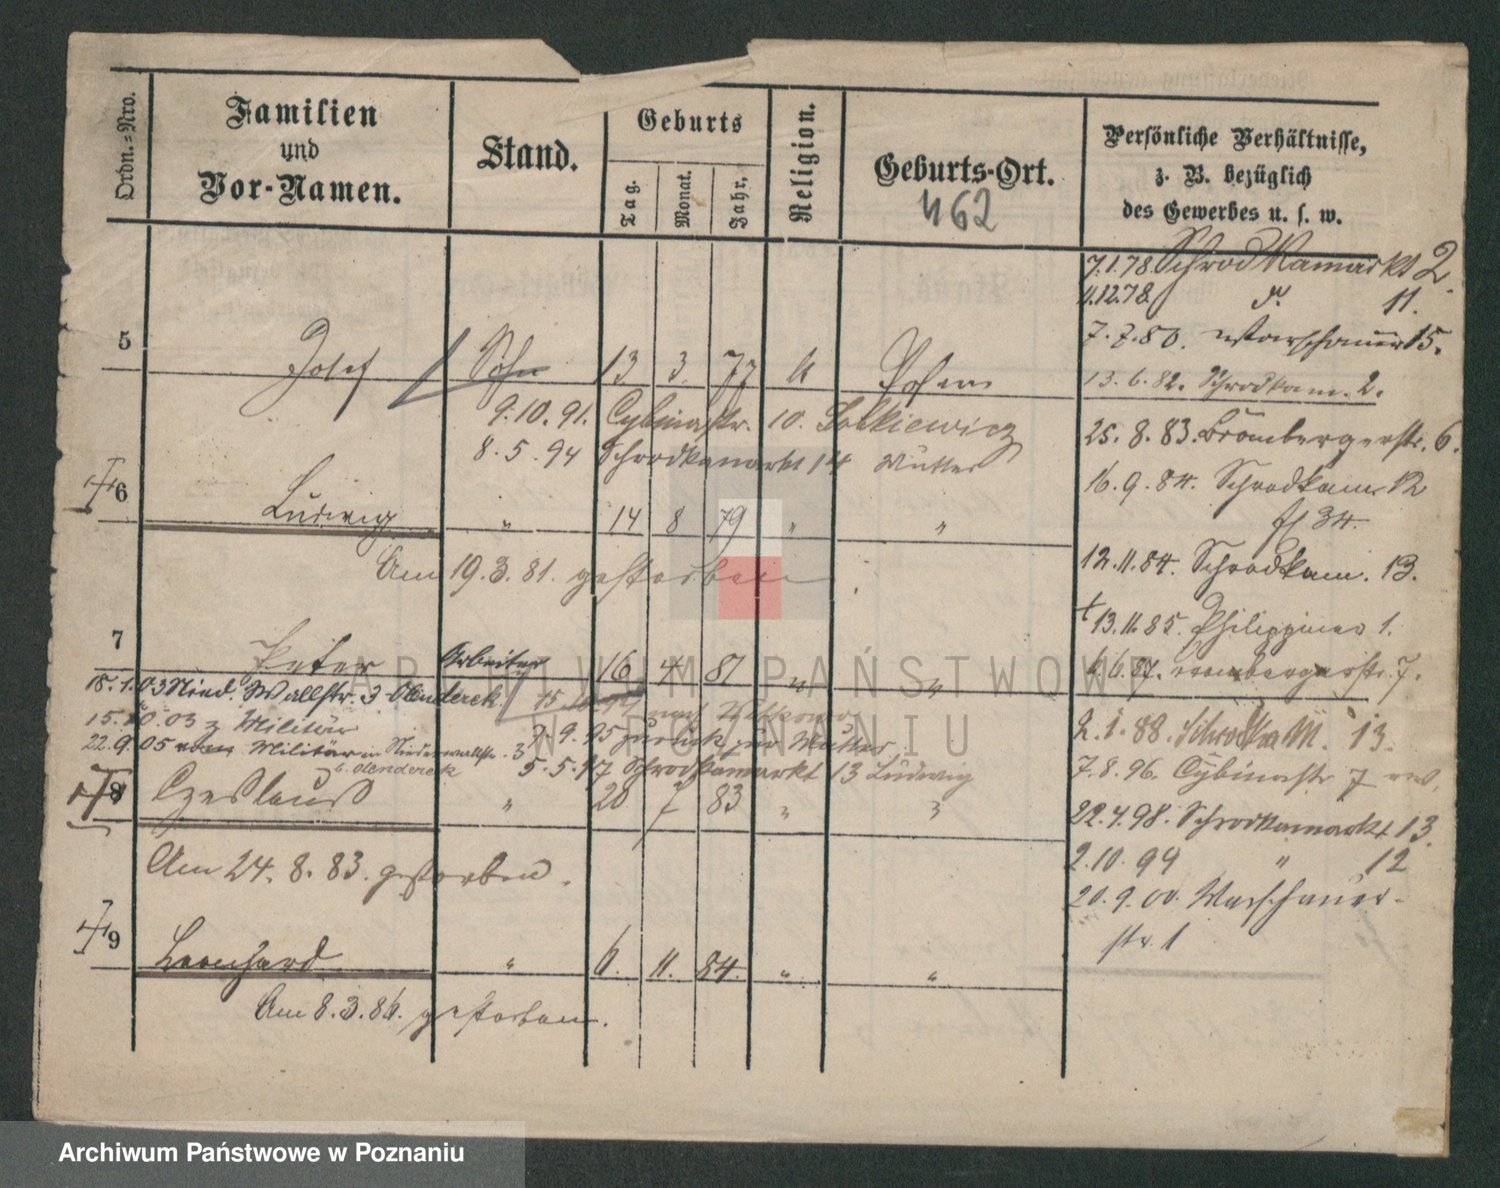 Ordn.=Nro.
Familien
und
Vor-Namen.
Stand.
Geburts
Tag.
Monat.
Jahr.
Religion.
Geburts-Ort.
462
Persönliche Verhältnisse,
z. B. bezüglich
des Gewerbes u. s. w.
7.1.78 Schrodkamarkt 2.
11.12.78 d. 11.
7.7.80. Warschauer 15.
5 Josef Sohn 13 3 77 k Posen
13.6.82. Schrodkam. 2.
9.10.91. Cybinastr. 10.
25.8.83. Brombergerstr. 6.
8.5.94 Schrodkamarkt 14 Mutter
16.9.84. Schrodkam 12
6 Ludwig " 14 8 79 " "
34.
Am 19.3.81. gestorben
12.11.84. Schrodkam. 13.
13.11.85. Philippines 1.
7 Peter Arbeiter 16 4 81 " "
6.6.87. Brombergerstr. 7.
18.1.03 Nied. Wallstr. 3 Olenderek
15.10.03 z Militär
2.1.88. Schrodka M. 13.
22.9.05 vom Militär in Niederwallstr. 3
b. Olenderek
9.9.95 zurück zur Mutter
7.8.96. Cybinastr 7
5.5.97 Schrodkamarkt 13 Ludwig
8 Czeslaus " 20 7 83 " "
22.4.98. Schrodkamarkt 13
Am 24.8.83. gestorben.
2.10.99 " 12
20.9.00. Warschauer-
str. 1
9 Leonhard " 6. 11. 84. " "
Am 8.3.86. gestorben.
ARCHIWUM PAŃSTWOWE
W POZNANIU
Archiwum Państwowe w Poznaniu